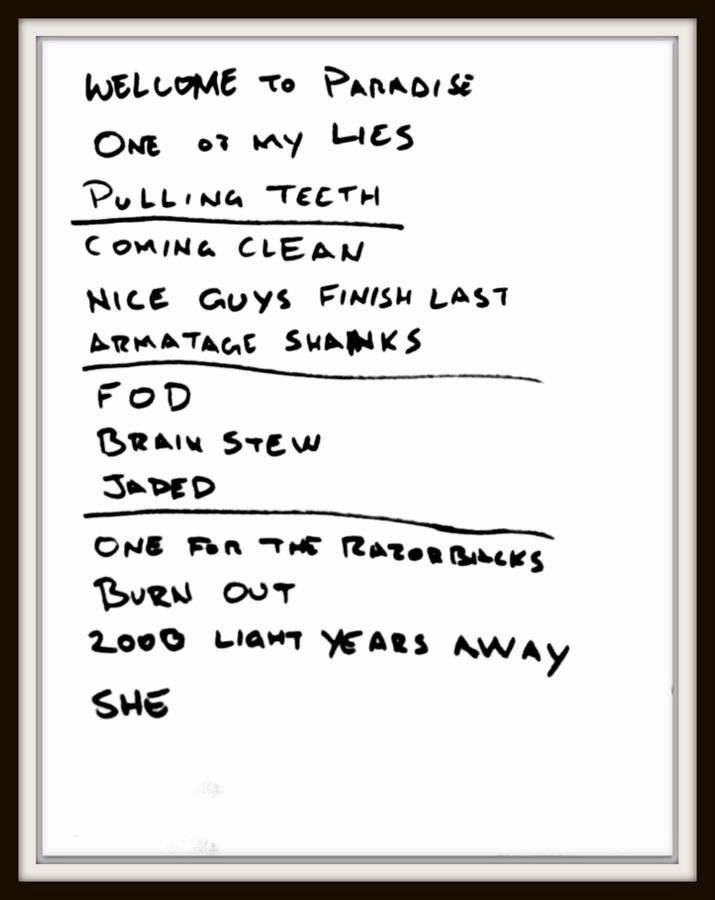 WELCOME TO PARADISE
ONE OF MY LIES
PULLING TEETH
COMING CLEAN
NICE GUYS FINISH LAST
ARMATAGE SHANKS
FOD
BRAIN STEW
JADED
ONE FOR THE RAZORBACKS
BURN OUT
2000 LIGHT YEARS AWAY
SHE